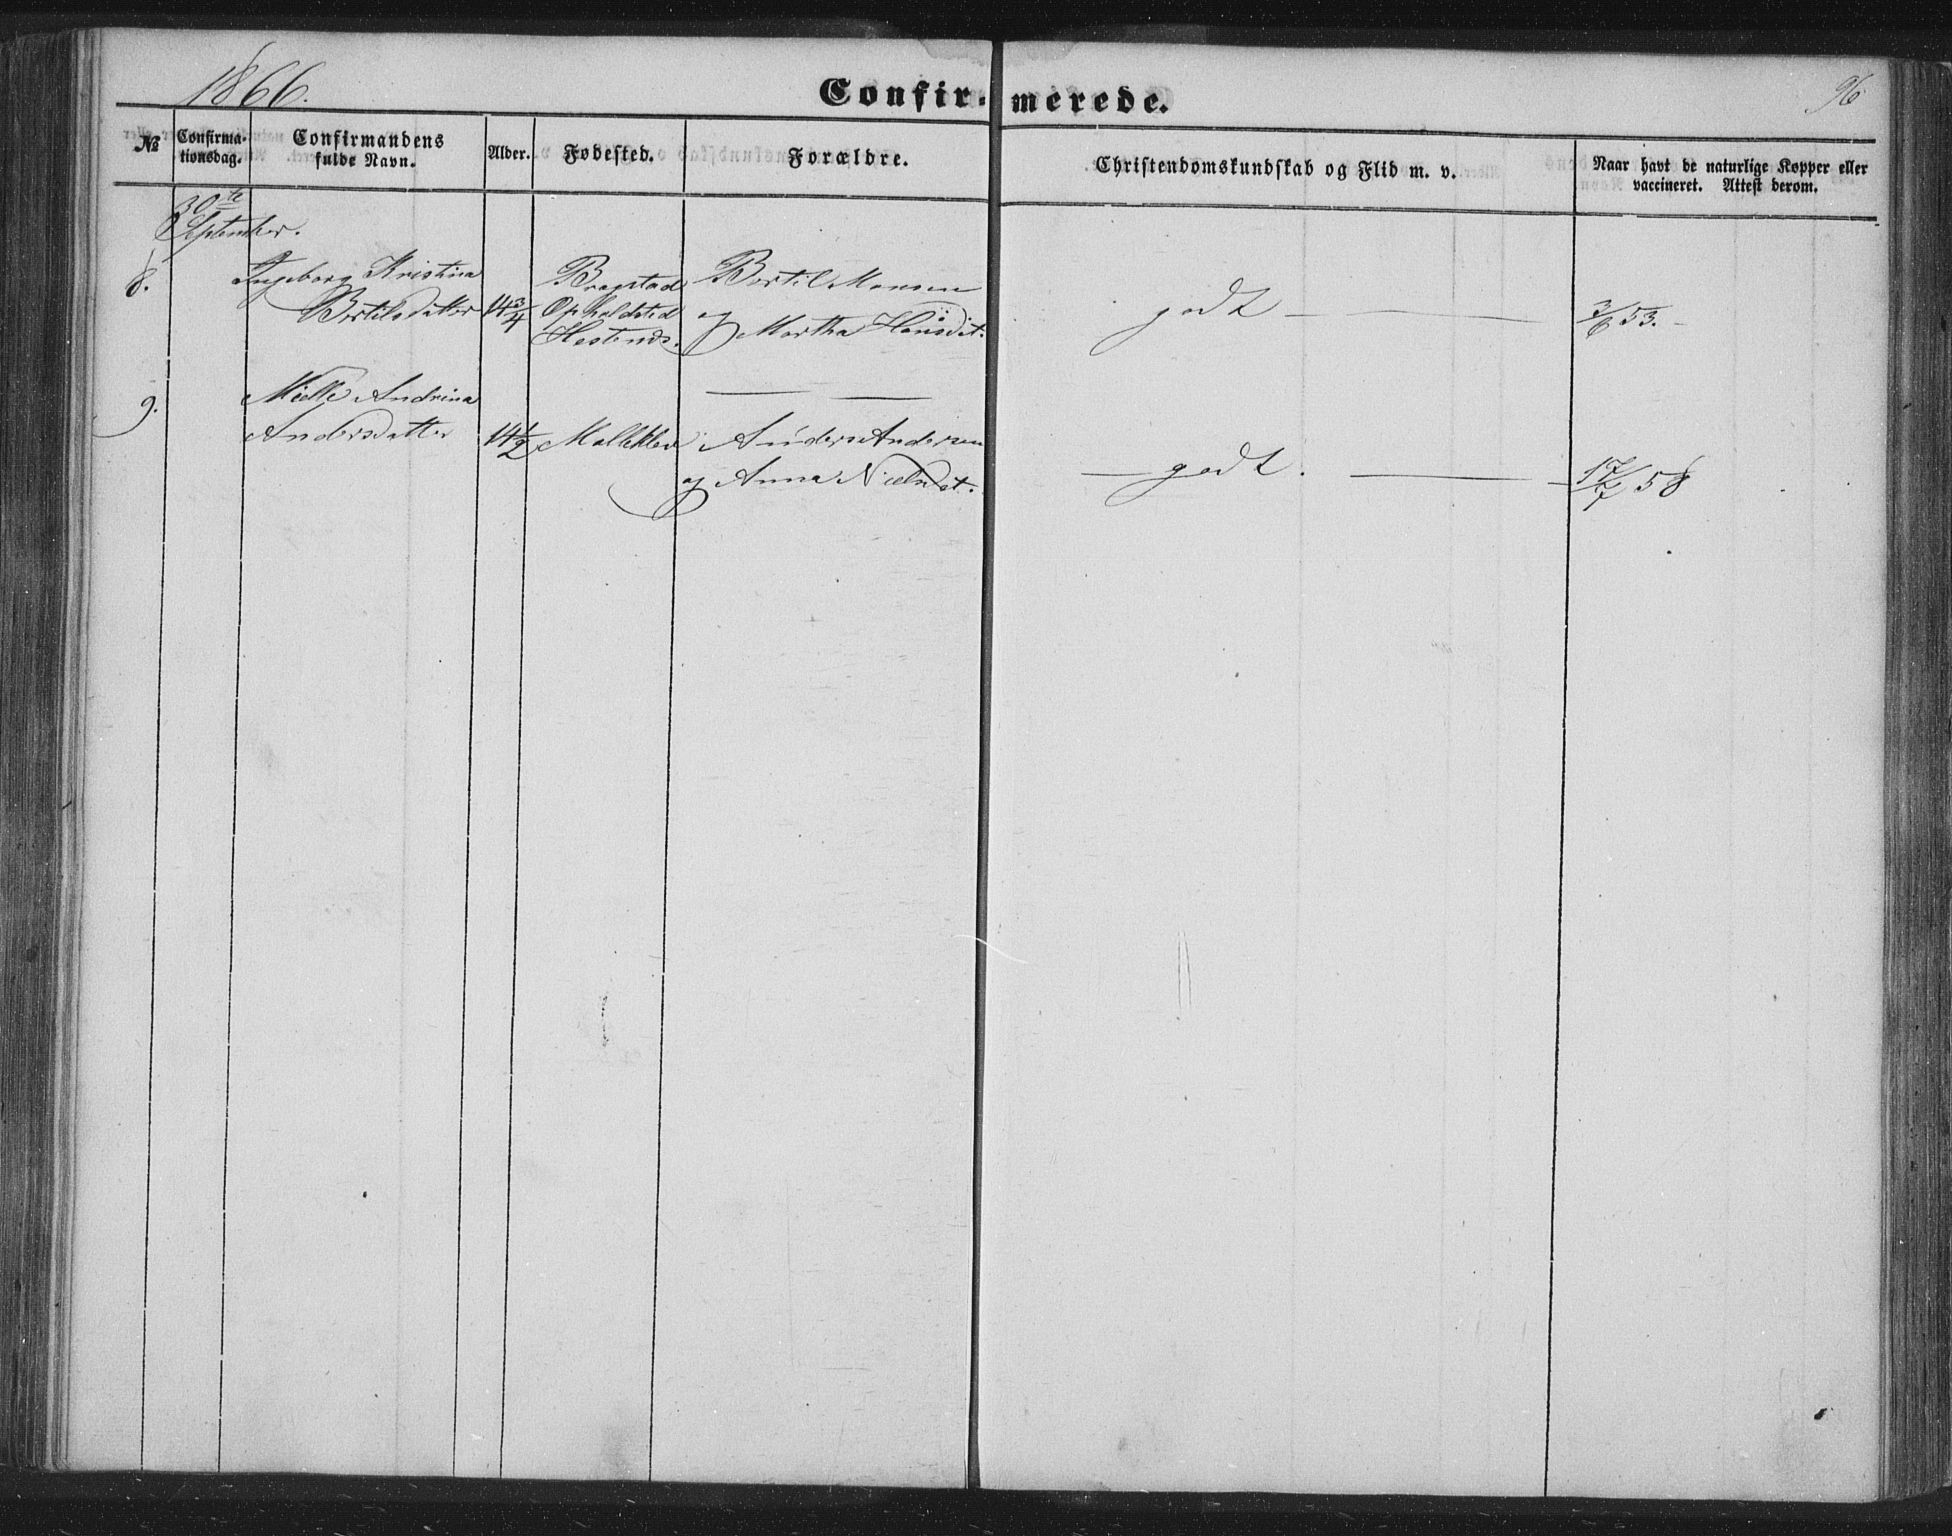 1866.
Confir- merede.
96
№
Confirma-
tionsdag.
Confirmandens
fulde Navn.
Alder.
Fødested.
Forældre.
Christendomskundskab og Flid m. v.
Naar havt de naturlige Kopper eller
vaccineret. Attest derom.
30te
September.
8. Ingeborg Kristina Bragstad Bertil Monsen
Bertilsdatter 14 3/4 Opholdsted og godt 3/6 53.
Martha Hansdt.
9. Andrina
Andersdatter 14 1/2 Anders Andersen
og Anna Nielsdt. godt. 17/7 58